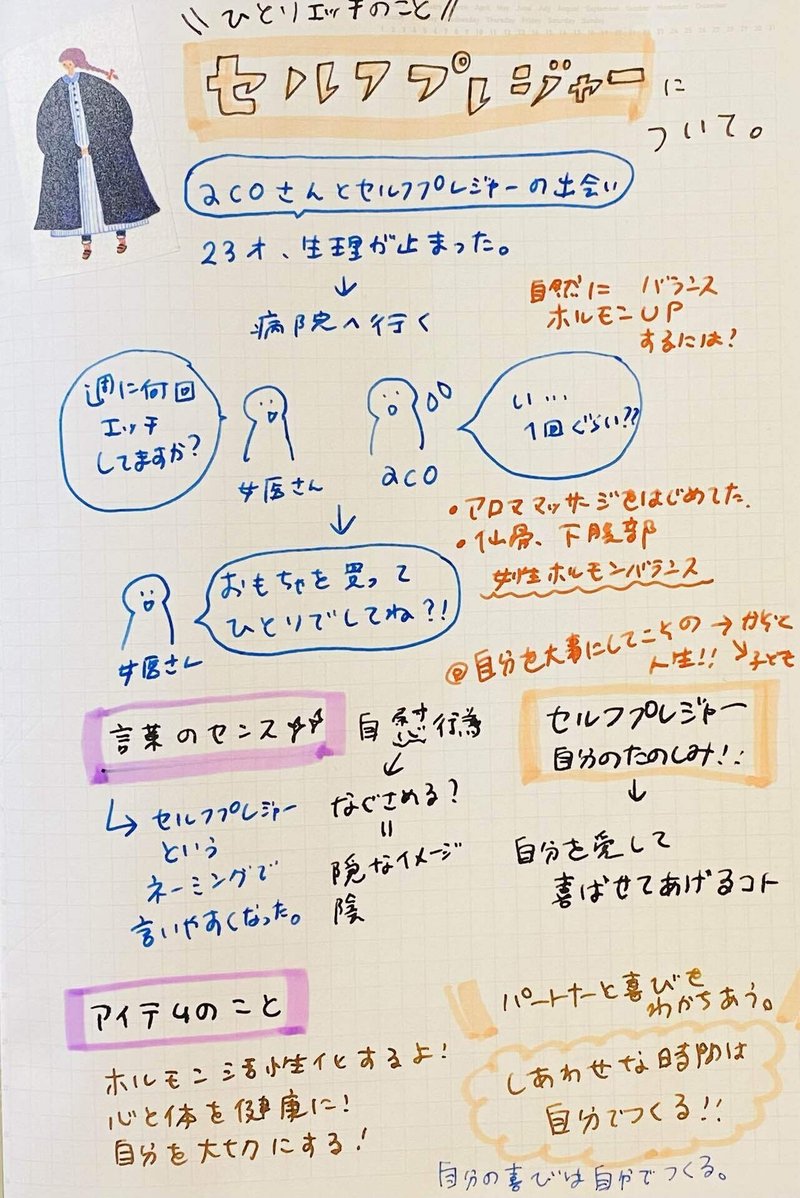 \\ ひとりエッチのこと //
セルフプレジャーに
ついて。
acoさんとセルフプレジャーの出会い
23才、生理が止まった。
↓
病院へ行く
自然に バランス
ホルモンUP
するには?
週に何回
エッチ
してますか?
女医さん
aco
い...
1回ぐらい??
↓
・アロママッサージをはじめてた.
・仙骨、下腹部
女性ホルモンバランス
おもちゃを買って
ひとりでしてね?!
女医さん
@自分を大事にしてこその → からだ
人生!! ↘ 子ども
言葉のセンス☆☆
↳ セルフプレジャー
という
ネーミングで
言いやすくなった。
自慰行為
↙
なぐさめる?
=
隠なイメージ
陰
セルフプレジャー
自分のたのしみ!!
↓
自分を愛して
喜ばせてあげるコト
アイテムのこと
ホルモン活性化するよ!
心と体を健康に!
自分を大切にする!
パートナーと喜びを
わかちあう。
しあわせな時間は
自分でつくる!!
自分の喜びは自分でつくる。